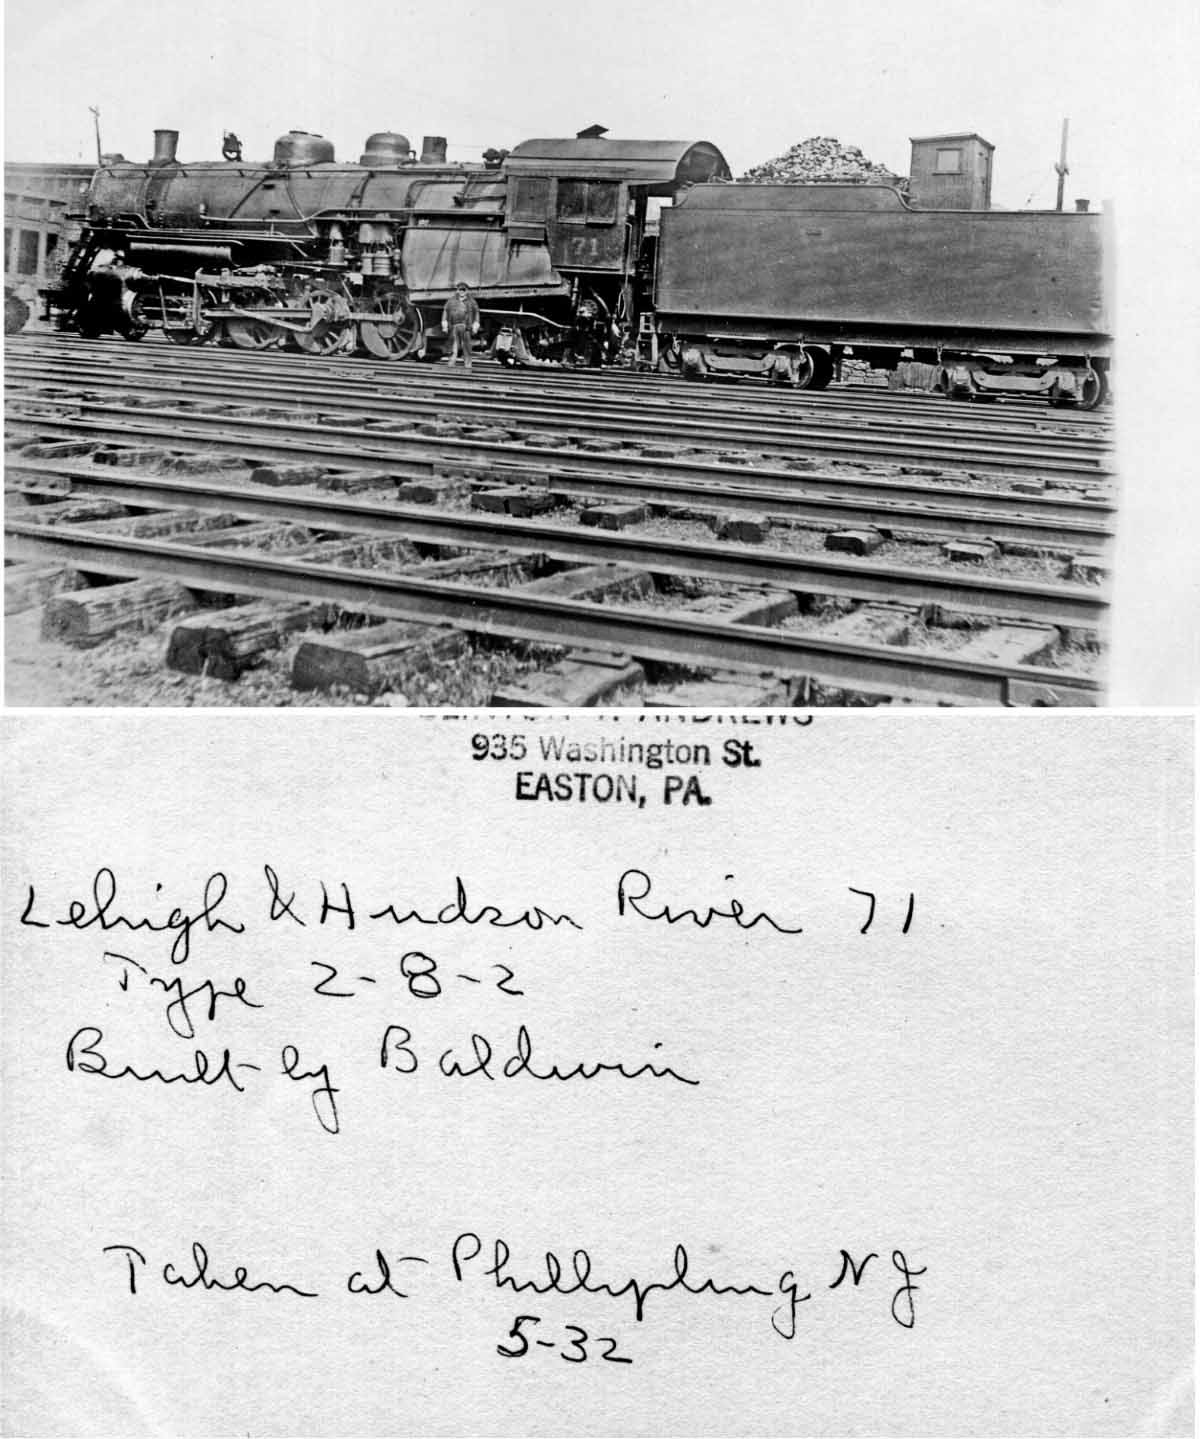 71
ANDREWS
935 Washington St.
EASTON, PA.
Lehigh & Hudson River 71
Type 2-8-2
Built by Baldwin
Taken at Phillipsburg NJ
5-32